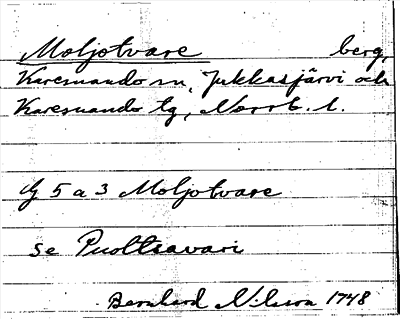 Moljotvare berg,
Karesuando sn, Jukkasjärvi och
Karesuando tg, Norrb. l.
dg 5 a 3 Moljotvare
se Puoltsavari
Bernhard Nilsson 1748